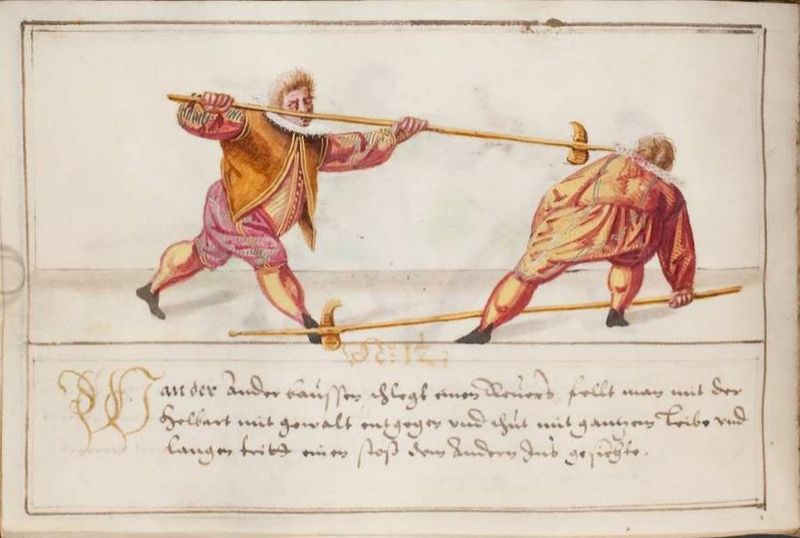 12
Wan der Ander baussen schlegt einen Reuers, fellt man mit der
Helbart mit gewalt entgegen vnd thut mit gantzem leibe vnd
langen tritt einen stoß dem Andern Ins gesichte.